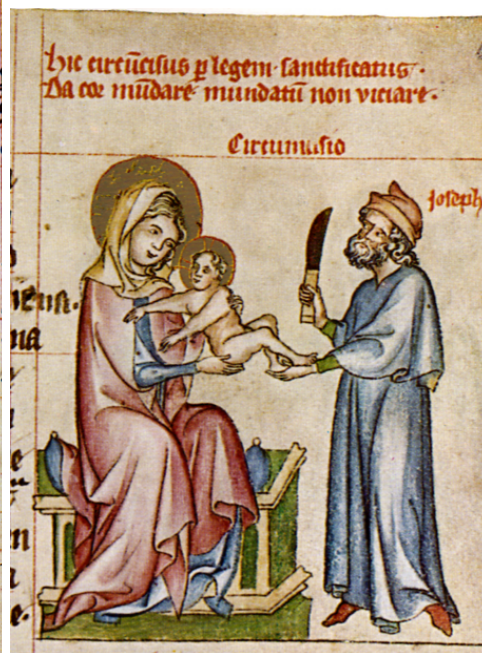 hic circūcisus ꝑ legem sanctificatus·
Da cor mūdare mundatū non viciare·
Circumsisio
Joseph